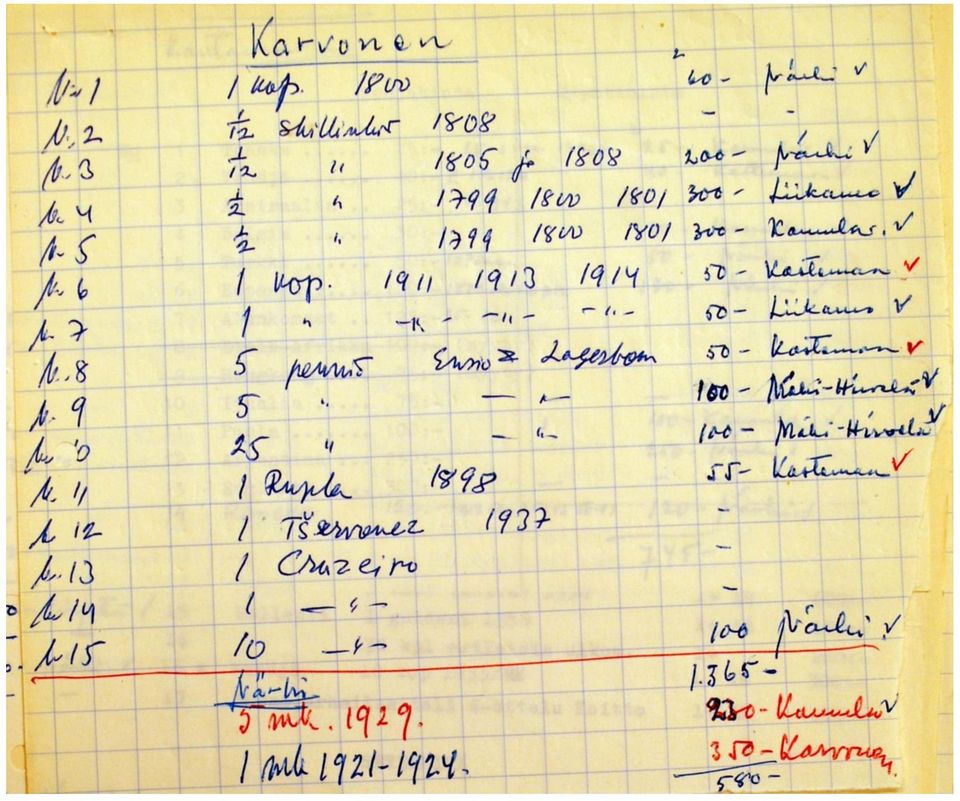 Karvonen
N:o 1 1 kop. 1800 40- Närhi ✓
N:o 2 1/12 skillinkiä 1808 - -
N:o 3 1/12 " 1805 ja 1808 200- Närhi ✓
N:o 4 1/2 " 1799 1800 1801 300- Liikamo ✓
N:o 5 1/2 " 1799 1800 1801 300- ✓
N:o 6 1 kop. 1911 1913 1914 50- Kasteman ✓
N:o 7 1 " -"- -"- -"- 50- Liikamo ✓
N:o 8 5 penniä Ensio Lagerbom 50- Kasteman ✓
N:o 9 5 " -"- 100- Mäki-Hirvelä ✓
N:o 10 25 " -"- 100- Mäki-Hirvelä ✓
N:o 11 1 Rupla 1898 55- Kasteman ✓
N:o 12 1 Tšervonez 1937 -
N:o 13 1 Cruzeiro -
N:o 14 1 -"- -
N:o 15 10 -"- 100 Närhi ✓
1.365-
Närhi
5 mk. 1929. 230- Kannula ✓
1 mk 1921-1924. 350- Karvonen
580-